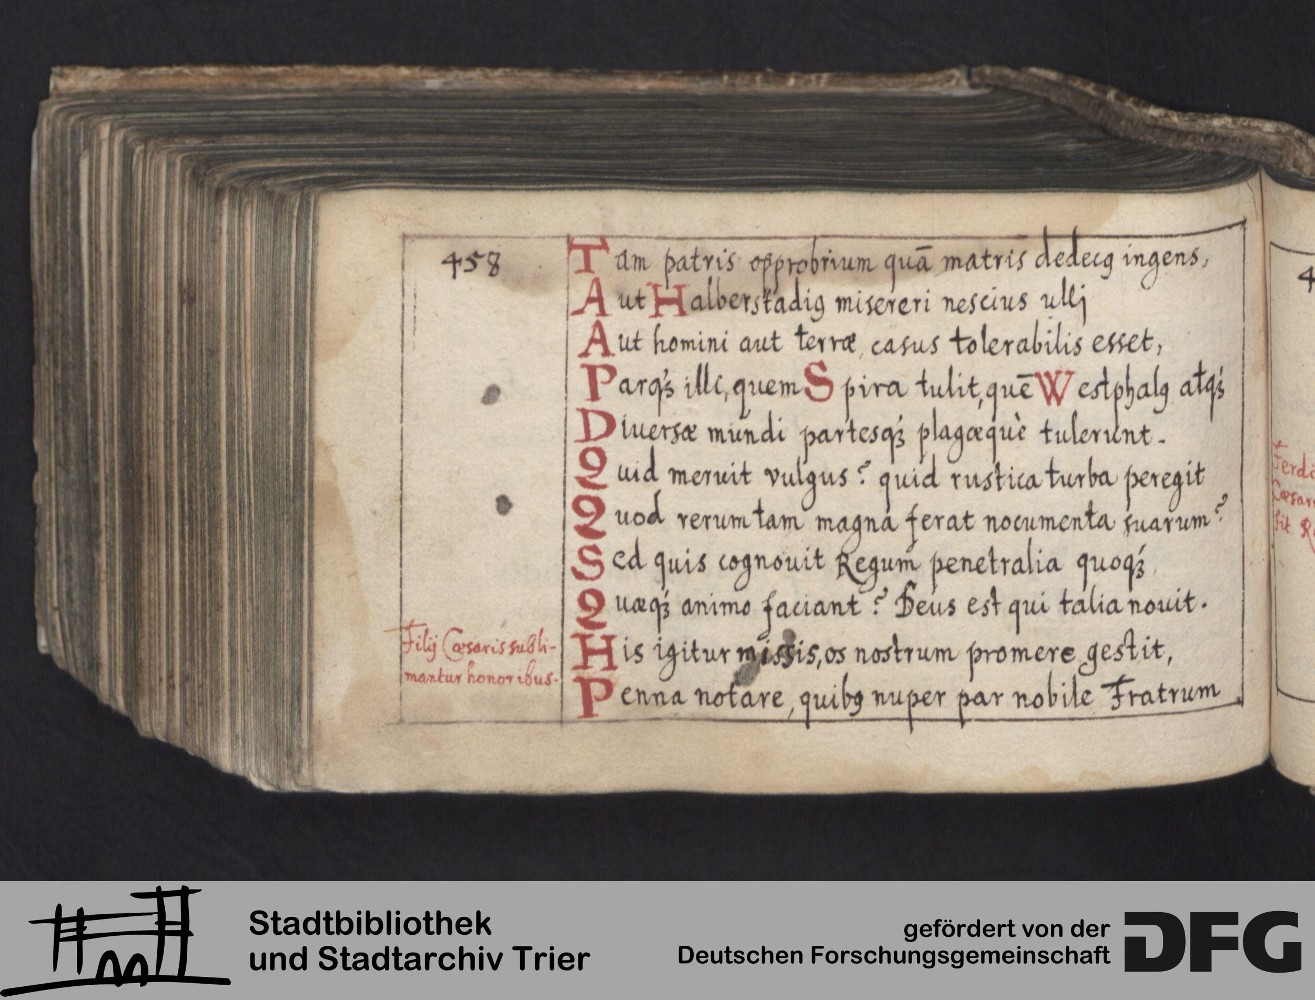 458
Tam patris opprobrium quā matris dedecꝰ ingens,
Aut Halberstadiꝰ misereri nescius ullj
Aut homini aut terræ, casus tolerabilis esset,
Parqꝫ́ illi, quem Spira tulit, quē Westphalꝰ atqꝫ́
Diuersæ mundi partesqꝫ́ plagæquè tulerunt.
Quid meruit vulgus? quid rustica turba peregit
Quod rerum tam magna ferat nocumenta suarum?
Sed quis cognouit Regum penetralia quoqꝫ́
Quæqꝫ́ animo faciant? Deus est qui talia nouit.
His igitur missis, os nostrum promere gestit,
Penna notare, quibꝰ nuper par nobile Fratrum
Filij Cæsaris subli-
mantur honoribus.
4
Cæsar
sit
Stadtbibliothek
und Stadtarchiv Trier
gefördert von der
Deutschen Forschungsgemeinschaft
DFG